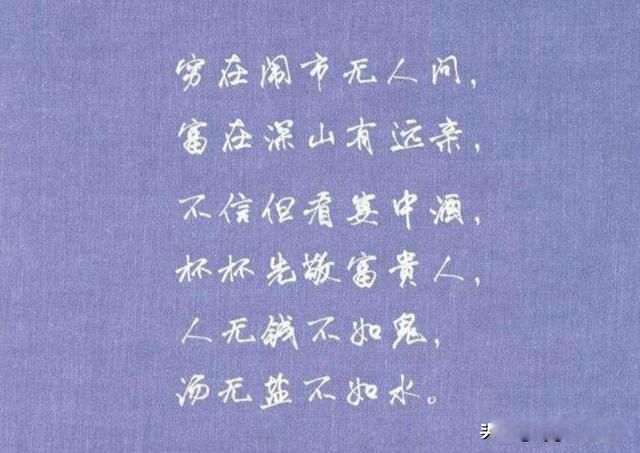 穷在闹市无人问，
富在深山有远亲，
不信但看宴中酒，
杯杯先敬富贵人，
人无钱不如鬼，
汤无盐不如水。
头